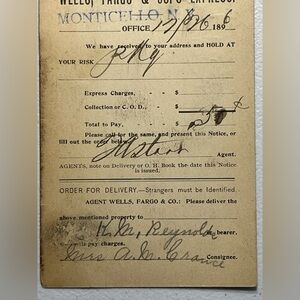 WELLS, FARGO & CO.'S EXPRESS.
MONTICELLO N.Y.
OFFICE 12/26 1896
We have received to your address and HOLD AT
YOUR RISK Pkg
Express Charges, - - $
Collection or C. O. D., - $
Total to Pay, - - $
Please call for the same, and present this Notice, or
fill out the order below.
Agent.
AGENTS, note on Delivery or O. H. Book the date this Notice
is issued.
ORDER FOR DELIVERY.—Strangers must be Identified.
AGENT WELLS, FARGO & CO.: Please deliver the
above mentioned property to
K. M. Reynolds bearer,
who will pay charges.
Mrs A. M. Crance Consignee.